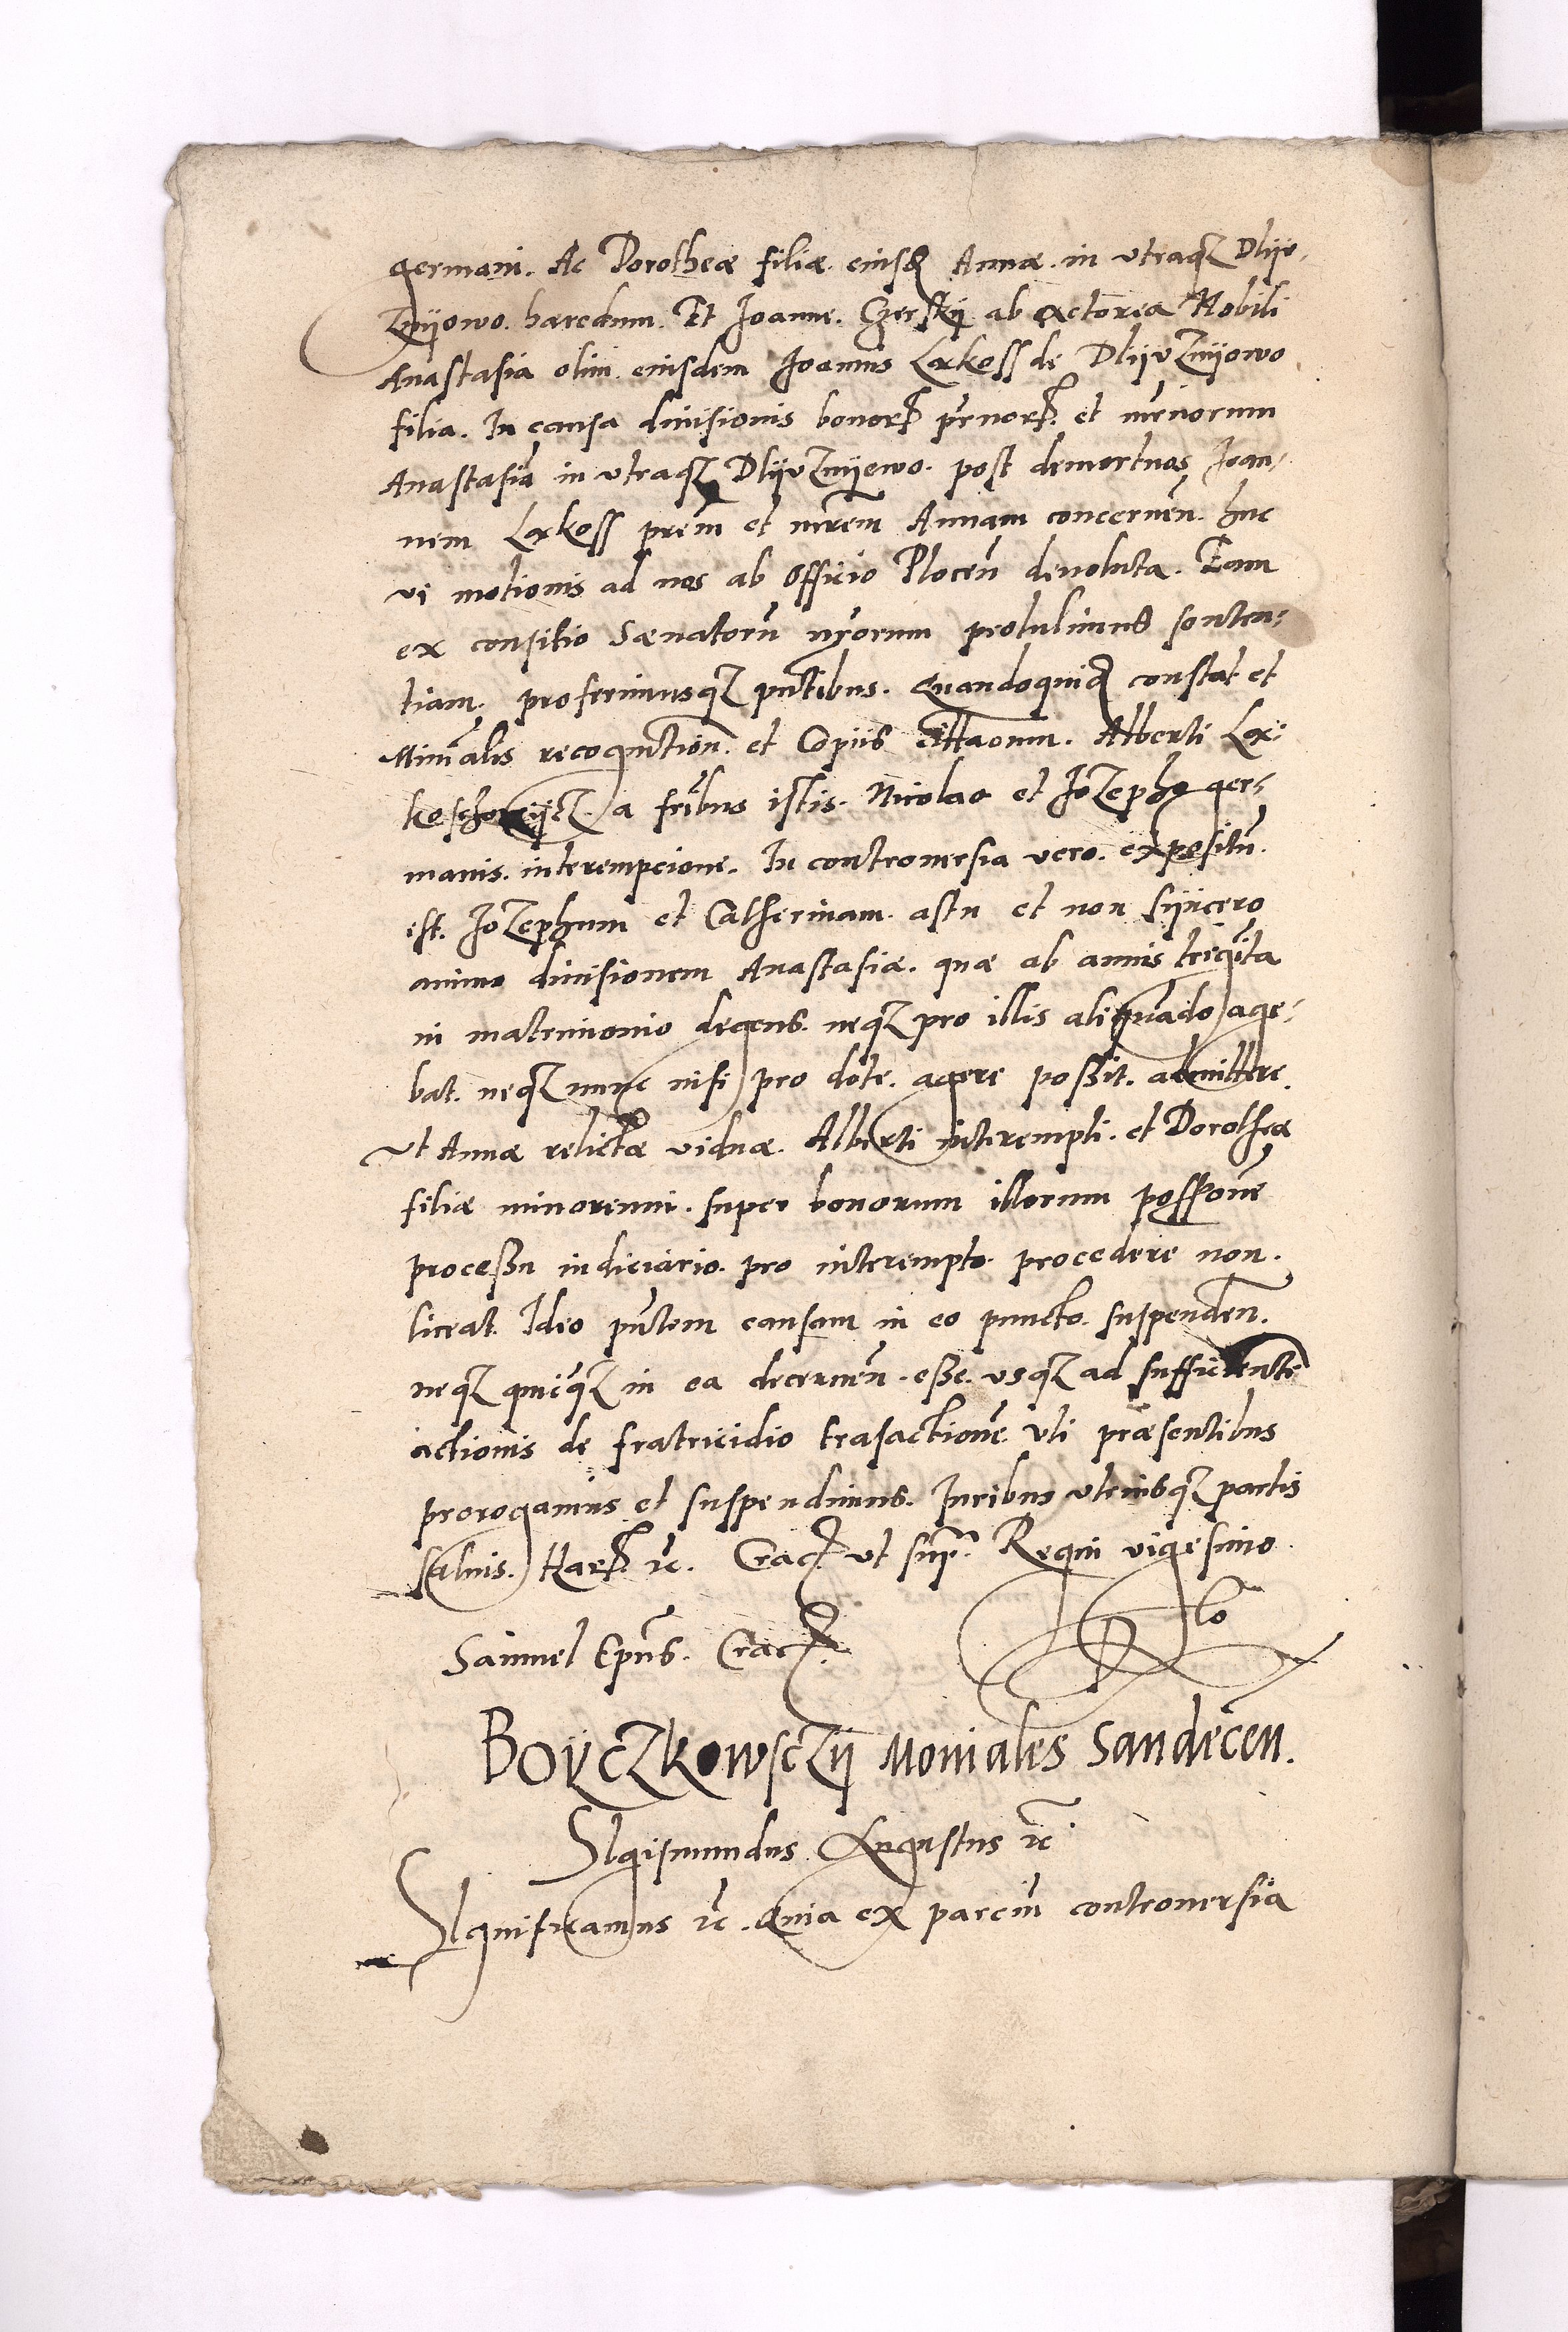 germani. Ac Dorotheæ filiæ eiusd Annæ. in vtraqz Dlijv,
Zmijowo. hæredum. Et Joanne. Czerskij ab actorea Nobili
Anastasia olim eiusdem Joannis Lxkoss de DlijvZmijowo
filia. In causa diuisionis bonorꝝ pr̃norꝝ. et mr̃norum
Anastasiã in vtraqz DlijvZmijewo. post demortuos Joan,
nem Lxkoss prẽm et mr̃em Annam concerneñ. huc
vi motionis ad nos ab Officio Plocen̄ deuoluta. Eam
ex consilio Sænatorũ nr̃orum protulimus senten-
tiam. proferimusqz pñtibus. Quandoquid constat et
Minr̃alis recognition̄. et Copiis Cittaonum. Alberti Lx-
a frĩbus istis. Nicolao et JoZepho ger-
manis. interempcione. In controuersia vero. expositũ
est. JoZephum et Catherinam. astu et non sijncero
animo diuisionem Anastasiæ. quæ ab annis trigĩta
in matrimonio degens. neqz pro illis aliquãdo age-
bat. neqz nunc nisi pro dote. agere possit. admittere.
Vt Annæ relictæ viduæ. Alberti interempti. et Dorotheæ
filiæ minorenni. super bonorum illorum possiõne
processu iudiciario. pro interempto. procedere non.
liceat. Ideo pñtem causam in eo puncto. suspendeñ.
neqz quicqz in ea decerneñ. esse. vsqz ad sufficientẽ
actionis de fratricidio trãsactionẽ. vti præsentibus
prorogamus et suspendimus. Iuribus vtriusqz partis
saluis. Harꝝ &c. Crac. vt supr̃ Regni vigesimo
Samuel Ep̃us. Crac.
Borzkowsczij Moniales Sandecen.
Sigismundus Augustus &c
Significamus &c. Quia ex parciũ controuersia